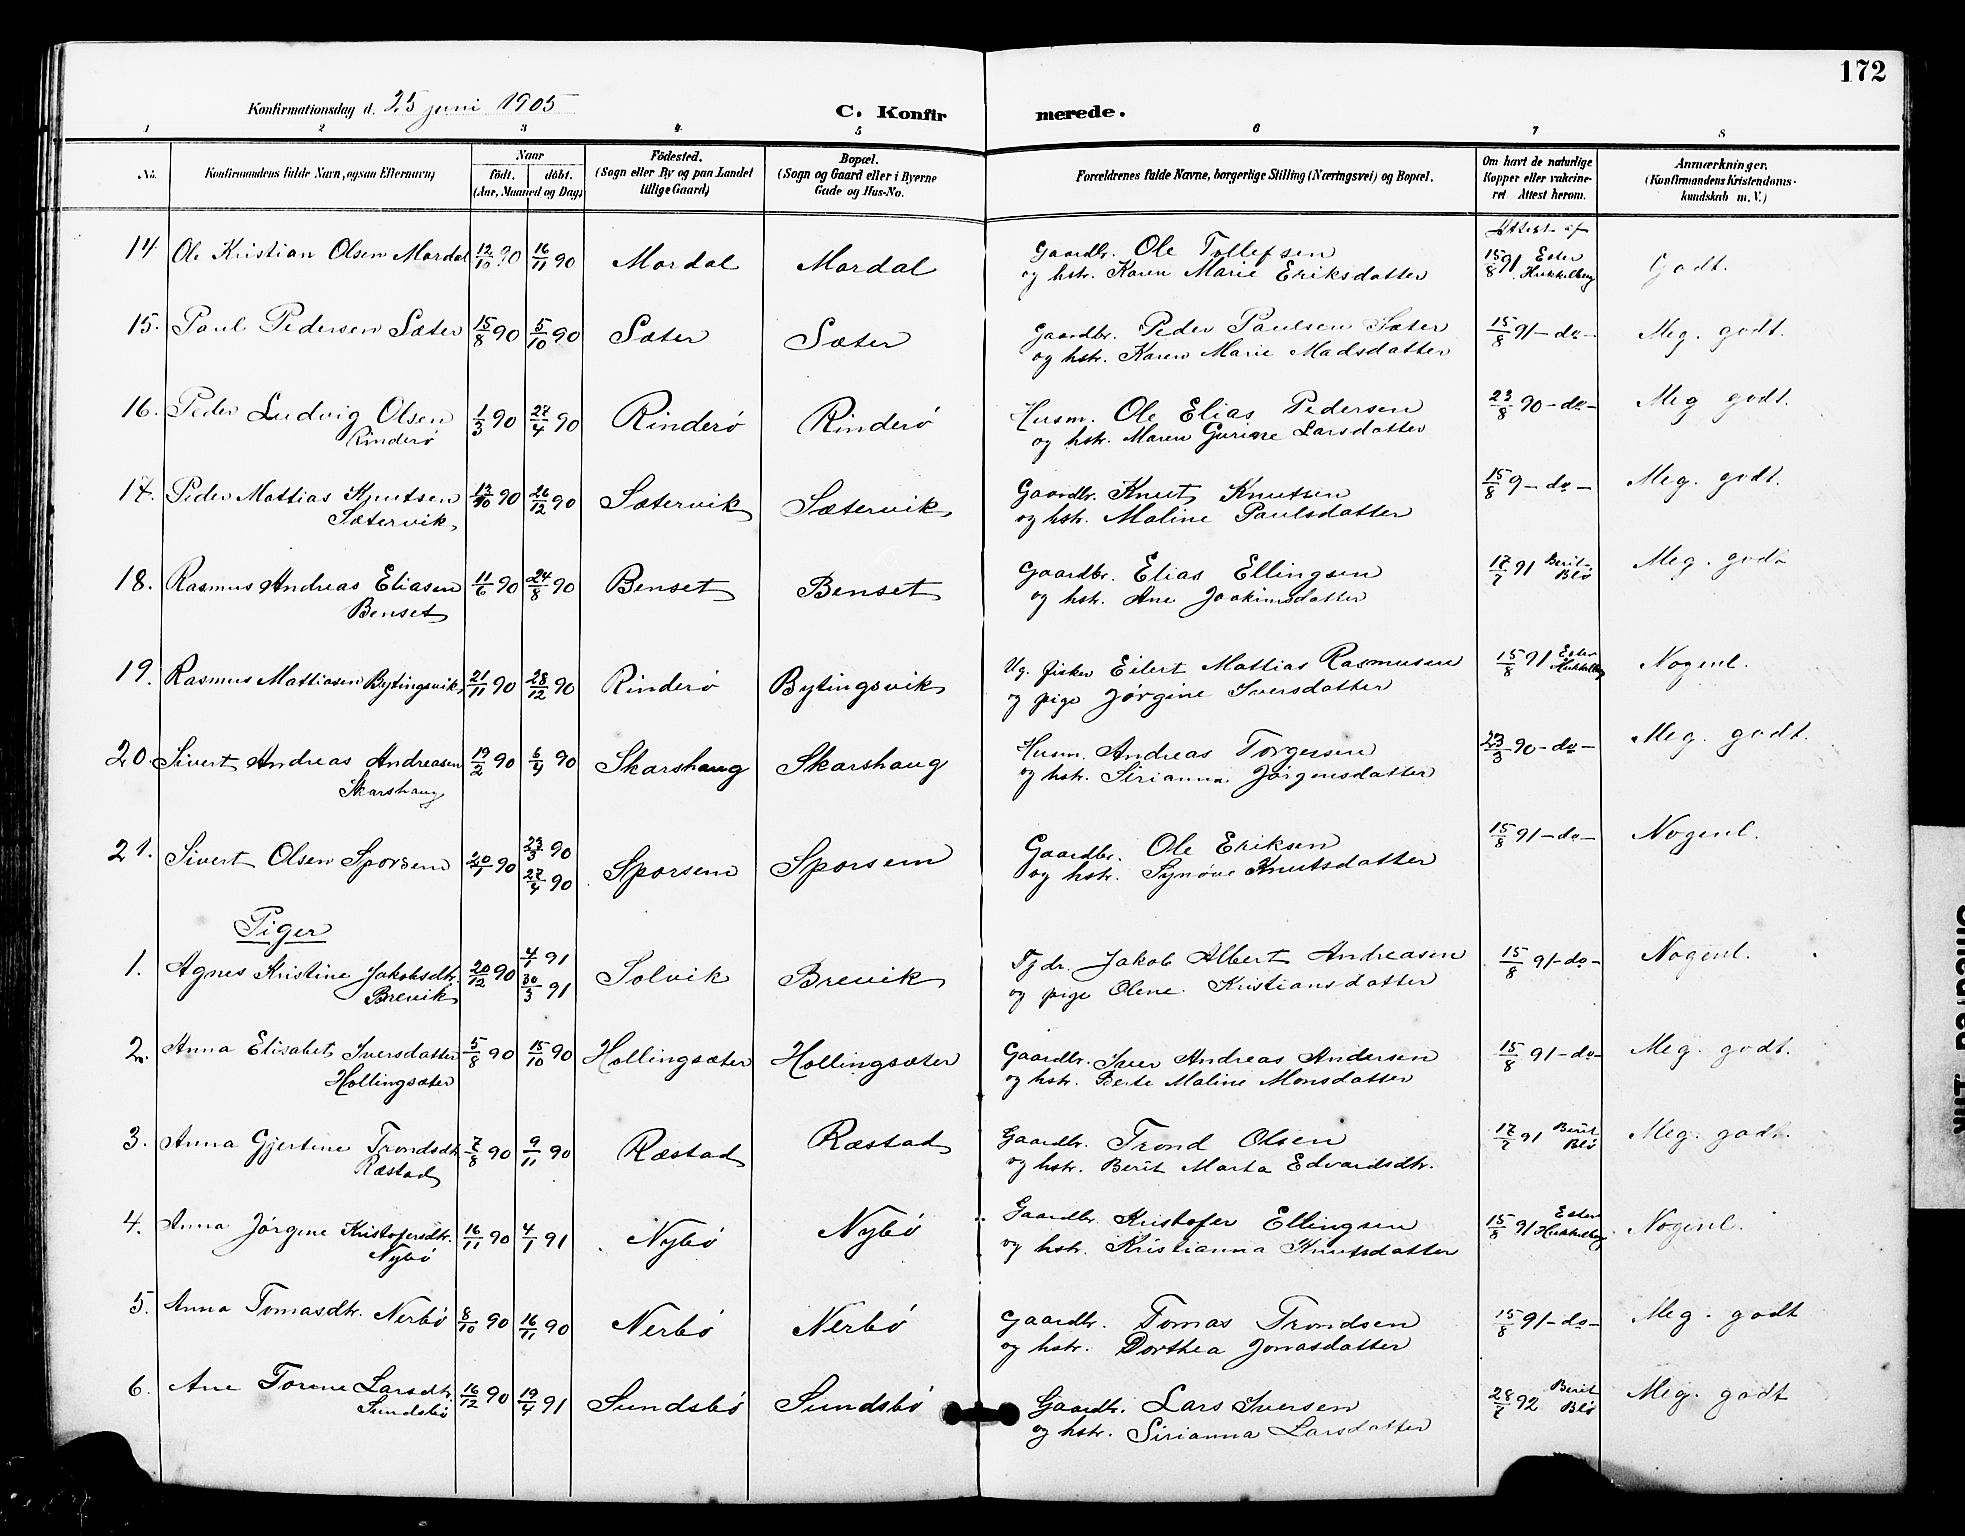 172
Konfirmationsdag d. 25 juni 1905
C. Konfirmerede.
1 2 3 4 5 6 7 8
No. Konfirmandens fulde Navn, ogsaa Efternavn, Naar født. døbt. (Aar, Maaned og Dag) Fødested. (Sogn eller By og paa Landet tillige Gaard) Bopæl. (Sogn og Gaard eller i Byerne Gade og Hus-No. Forældrenes fulde Navne, borgerlige Stilling (Næringsvei) og Bopæl. Om havt de naturlige Kopper eller vakcineret Attest herom. Anmærkninger. (Konfirmandens Kristendomskundskab m. V.)
Attest af
14 Ole Kristian Olsen Mordal 12/10 90 16/11 90 Mordal Mordal Gaardbr. Ole Tollefsen 15/8 91 Ester Hukkelberg Godt.
og hstr. Karen Marie Eriksdatter
15. Paul Pedersen Sæter 15/8 90 5/10 90 Sæter Sæter Gaardbr. Peder Paulsen Sæter 15/8 91 - do - Meg. godt.
og hstr. Karen Marie Madsdatter
16. Peder Ludvig Olsen 1/3 90 27/4 90 Rinderö Rinderö Husm. Ole Elias Pedersen 23/8 90 - do - Meg godt.
Rinderö og hstr. Maren Gurine Larsdatter
17. Peder Mattias Knutsen 90 26/12 90 Sætervik Sætervik Gaardbr. Knut Knutsen 15/8 9 - do - Meg. godt.
Sætervik og hstr. Maline Paulsdatter
18. Rasmus Andreas Eliasen 11/6 90 24/8 90 Benset Benset Gaardbr. Elias Ellingsen 17/7 91 Berit Blø Meg. godt
Benset og hstr. Ane Joakimsdatter
19. Rasmus Mattiasen Bytingsvik 21/11 90 28/12 90 Rinderö Bytingsvik Ug. fisker Eilert Mattias Rasmusen 15/8 91 Ester Hukkelberg Nogenl.
og pige Jørgine Iversdatter
20. Sivert Andreas Andreasen 19/2 90 6/4 90 Skarshaug Skarshaug Husm. Andreas Torgersen 23/3 90 - do - Meg. godt.
Skarshaug og hstr. Sirianna Jørgensdatter
21. Sivert Olsen Sporsem 90 23/3 90 27/4 90 Sporsem Sporsem Gaardbr. Ole Eriksen 15/8 91 - do - Nogenl.
og hstr. Synøve Knutsdatter
Piger
1. Agnes Kristine Jakobsdtr. 20/12 90 4/1 91 30/3 91 Solvik Brevik Tjdr. Jakob Albert Andreasen 15/8 91 - do - Nogenl.
Brevik og pige Olene Kristiansdatter
2. Anna Elisabet Iversdatter 5/8 90 15/10 90 Hollingsæter Hollingsæter Gaardbr. Iver Andreas Andersen 15/8 91 - do - Meg. godt.
Hollingsæter og hstr. Berte Maline Monsdatter
3. Anna Gjertine Trondsdt. 7/8 90 9/11 90 Ræstad Ræstad Gaardbr. Trond Olsen 17/7 91 Berit Blø Meg. godt.
Ræstad og hstr. Berit Marta Edvardsdtr.
4. Anna Jørgine Kristofersdtr. 16/11 90 4/1 91 Nybö Nybö Gaardbr. Kristofer Ellingsen 15/8 91 Ester Hukkelberg Nogenl.
Nybö og hstr. Kristianna Knutsdatter
5. Anna Tomasdtr. Nerbö 8/10 90 16/11 90 Nerbö Nerbö Gaardbr. Tomas Trondsen 15/8 91 - do - Meg. godt
og hstr. Dorthea Jonasdatter
6. Ane Torine Larsdtr. 16/12 90 19/4 91 Sundsbö Sundsbö Gaardbr. Lars Iversen 28/7 92 Berit Blø Meg. godt
Sundsbö og hstr. Sirianna Larsdatter